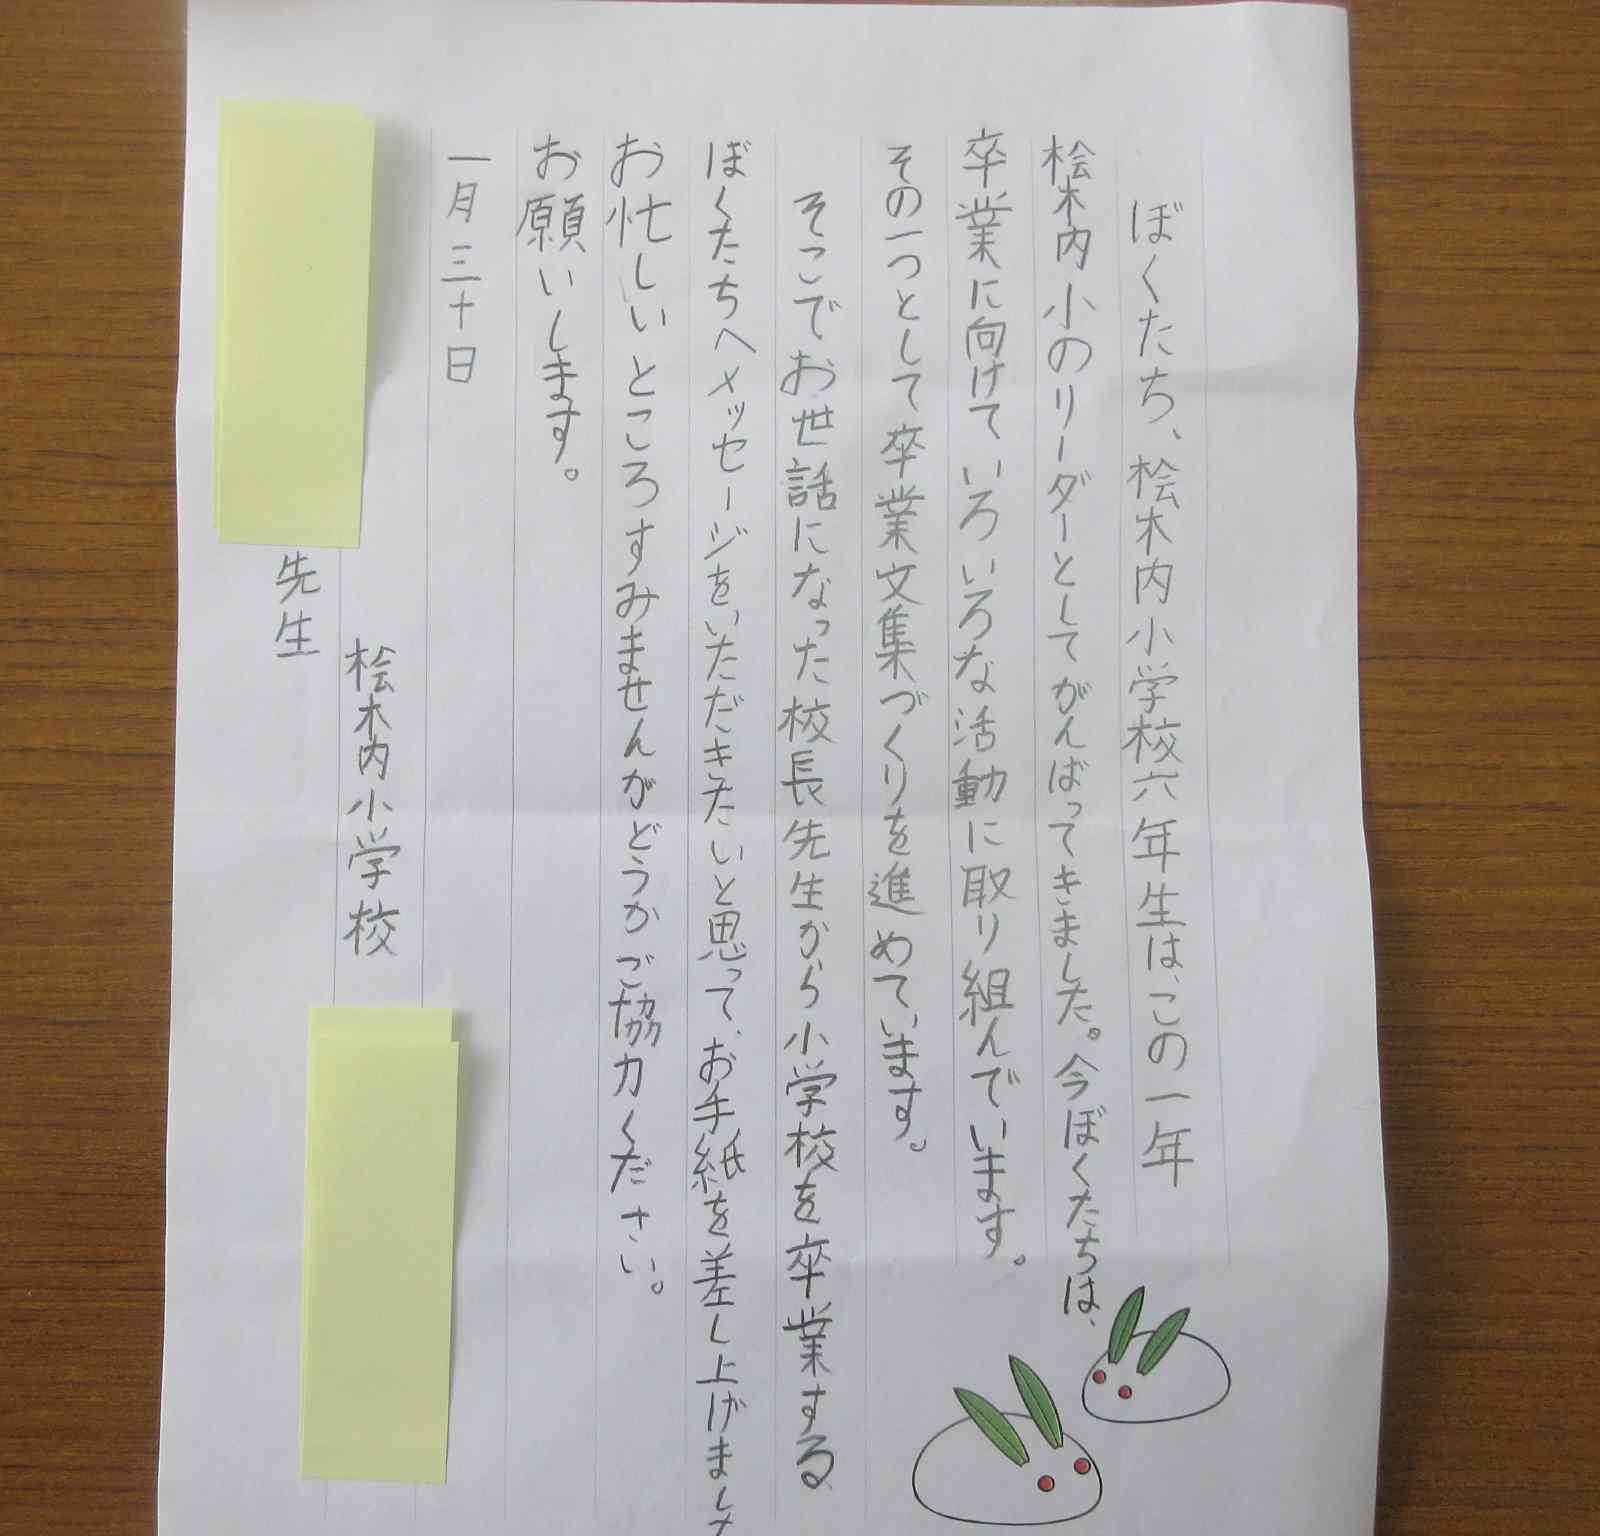 ぼくたち、桧木内小学校六年生は、この一年
桧木内小のリーダーとしてがんばってきました。今ぼくたちは、
卒業に向けていろいろな活動に取り組んでいます。
その一つとして卒業文集づくりを進めています。
そこでお世話になった校長先生から小学校を卒業する
ぼくたちへメッセージをいただきたいと思って、お手紙を差し上げました
お忙しいところすみませんがどうかご協力ください。
お願いします。
一月三十日
桧木内小学校
先生